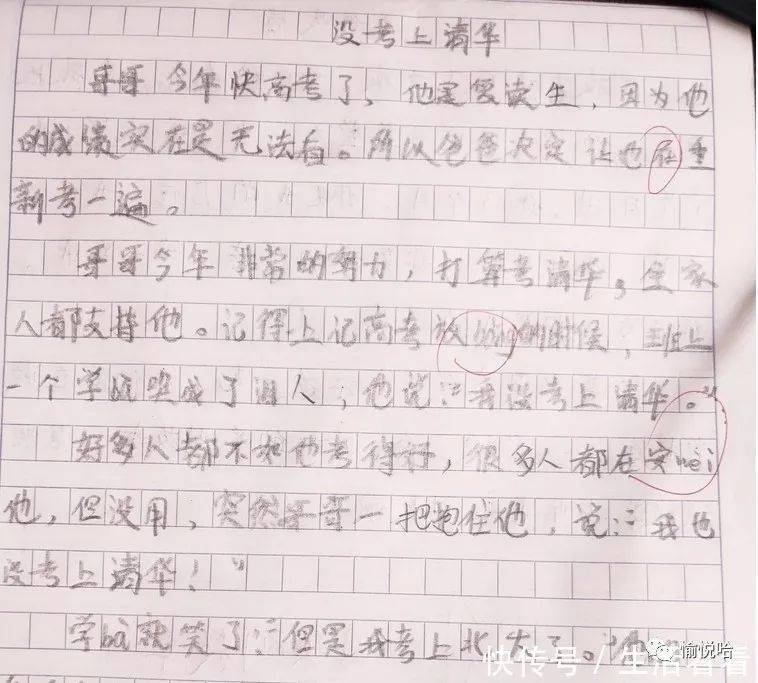 没考上清华
哥哥今年快高考了,他是复读生,因为他
的成绩实在是无法看。所以爸爸决定让他在重
新考一遍。
哥哥今年非常的努力,打算考清华,全家
人都支持他。记得上记高考放的时候,班上
一个学成了泪人,他说:“我没考上清华。”
好多人都不如他考得好,很多人都在安nèi
他,但没用,突然哥哥一把抱住他,说:“我也
没考上清华!”
学bà就笑了:“但是我考上北大了。”
快传号/生活看看
愉悦哈